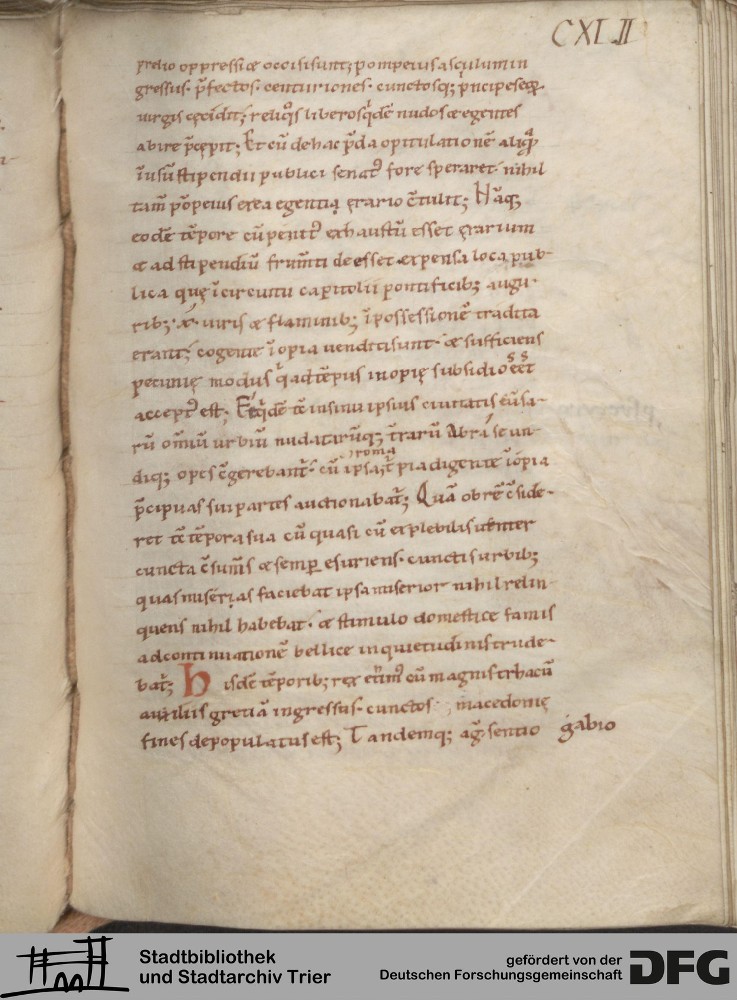 CXLII
prelio oppressi & occisi sunt; pompeius asculum in
gressus· p̄fectos· centuriones· cunctosq; p̄ncipes eoꝝ
uirgis cęcidit; reliq̊s liberos qͥdē nudos & egentes
abire p̄cepit; Et cū de hac p̄da opitulationē aliquā
ī usū stipendii publici senat᷒ fore speraret· nihil
tam̄ pōpeius ex ea egentia ęrario c̄tulit; Nāq;
eodē tēpore cū penit᷒ exhaustū esset ęrarium
& ad stipendiū frum̄ti deesset expensa loca pub-
lica quę ī circuitu capitolii pontificib; augu-
rib; & uiris & flaminib; ī possessionē tradita
erant; cogente īopia uendita sunt· & sufficiens
pecunię modus qͥ ad tēpus inopię subsidio e͛e͛t
accept᷒ est; Etqͥdē tc̄ in sinu ipsius ciuitatis euersa-
rū om̄iū urbiū nudatarūq; t̄rarū abrasę un-
diq; opes c̄gerebant̄· cū ipsa roma t̄pi adigente īopia
p̄cipuas sui partes auctionabat̄; Quā obrē c̄side-
ret tc̄ tēpora sua cū quasi cū explebilis uenter
cuncta c̄sum̄s & semp̲ esuriens· cunctis urbib;
quas miseras faciebat ipsa miserior nihil relin-
quens nihil habebat· & stimulo domestice famis
ad continuationē bellice inquietudinis trude-
bat̄; hisdē tēporib; rex cū magnis trhacū
auxiliis gretiā ingressus· cunctos macedonię
fines depopulatus est; Tandemq; a sentio gabio
Stadtbibliothek
und Stadtarchiv Trier
gefördert von der
Deutschen Forschungsgemeinschaft
DFG